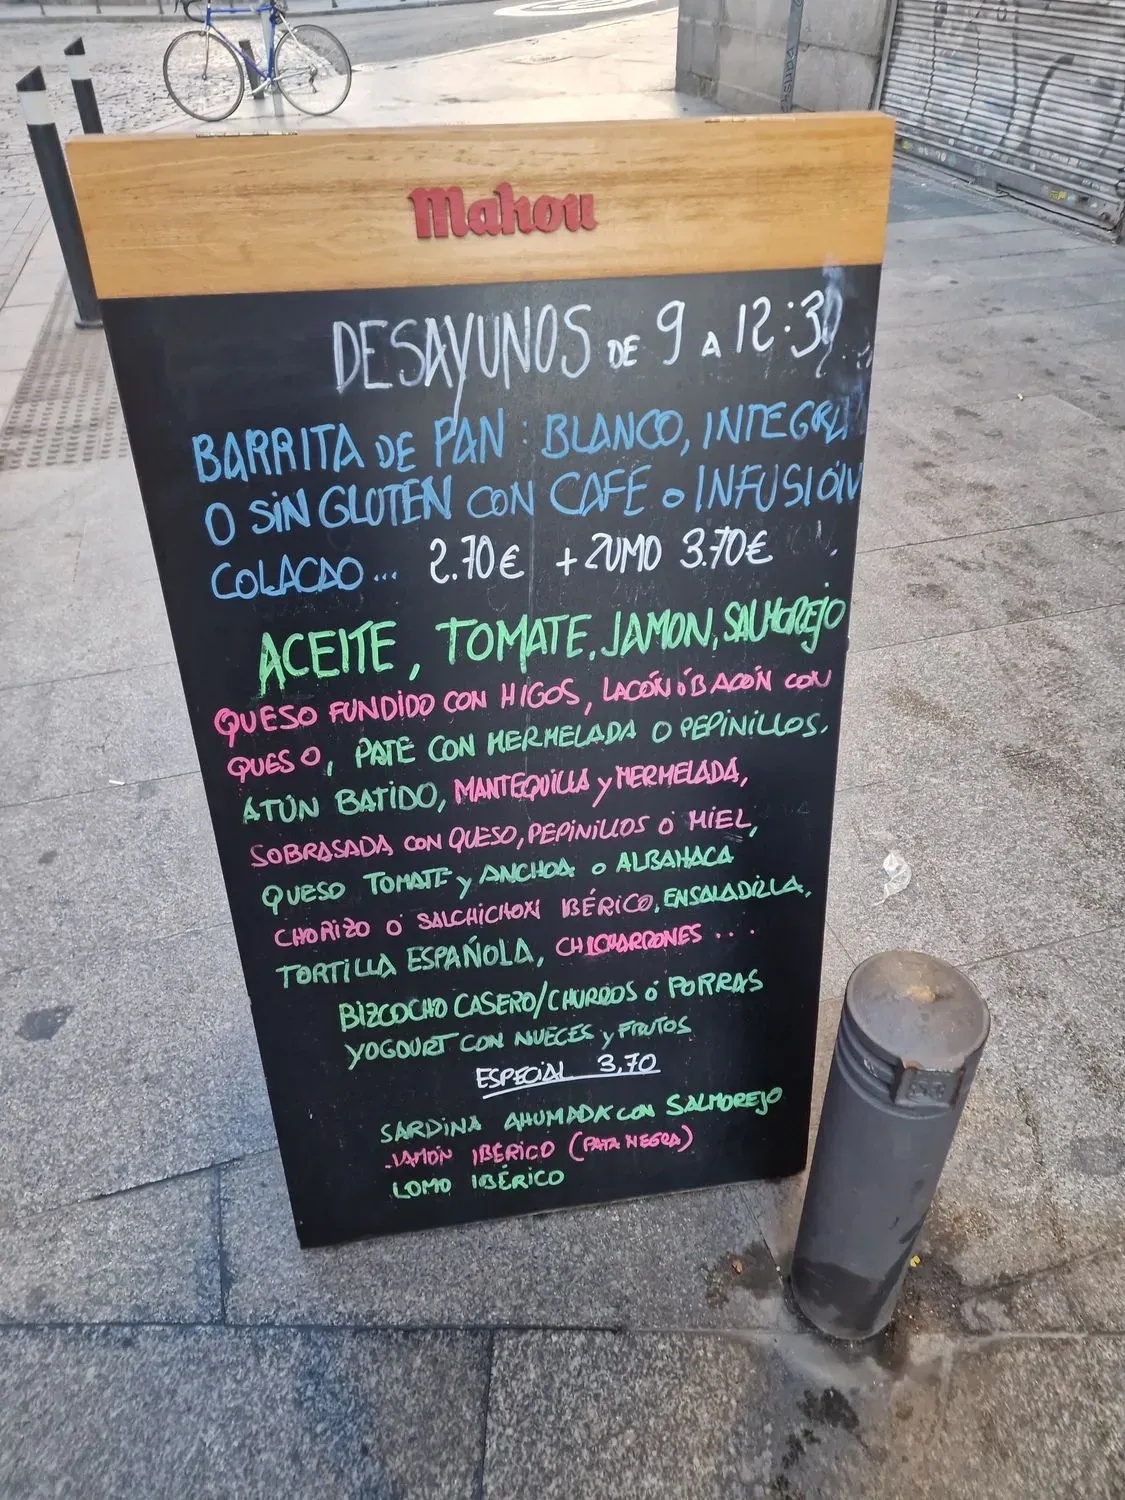 Mahou
DESAYUNOS DE 9 A 12:30
BARRITA DE PAN: BLANCO, INTEGRAL
O SIN GLUTEN CON CAFE o INFUSIÓN
COLACAO... 2.70€ + ZUMO 3.70€
ACEITE, TOMATE, JAMON, SALMOREJO
QUESO FUNDIDO CON HIGOS, LACÓN ó BACÓN CON
QUESO, PATE CON MERMELADA O PEPINILLOS,
ATÚN BATIDO, MANTEQUILLA y MERMELADA,
SOBRASADA CON QUESO, PEPINILLOS O MIEL,
QUESO TOMATE y ANCHOA o ALBAHACA
CHORIZO O SALCHICHON IBÉRICO, ENSALADILLA,
TORTILLA ESPAÑOLA, CHICHARRONES ...
BIZCOCHO CASERO/CHURROS ó PORRAS
YOGOURT CON NUECES y FRUTOS
ESPECIAL 3,70
SARDINA AHUMADA CON SALMOREJO
JAMÓN IBÉRICO (PATA NEGRA)
LOMO IBÉRICO